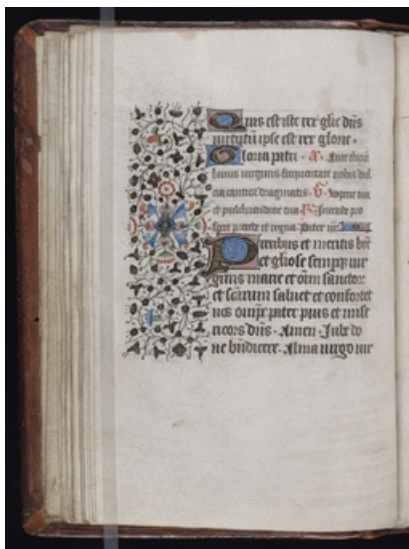 Quis est iste rex glie dns
virtutu ipse est rex glorie.
Gloria patri. a. Ante thoru
huius virginis frequentate nobis dul
cia cantica dragmatis. V. Specie tua
et pulchritudine tua. R. Intende pro
spere procede et regna. Pater nr
Precibus et meritis bte
et gliose semperqz vir
ginis marie et oim sanctor
et sctarum salvet et confortet
nos omps pater pius et mise
ricors dns. Amen. Iube do
ne bndicere. Alma virgo vir